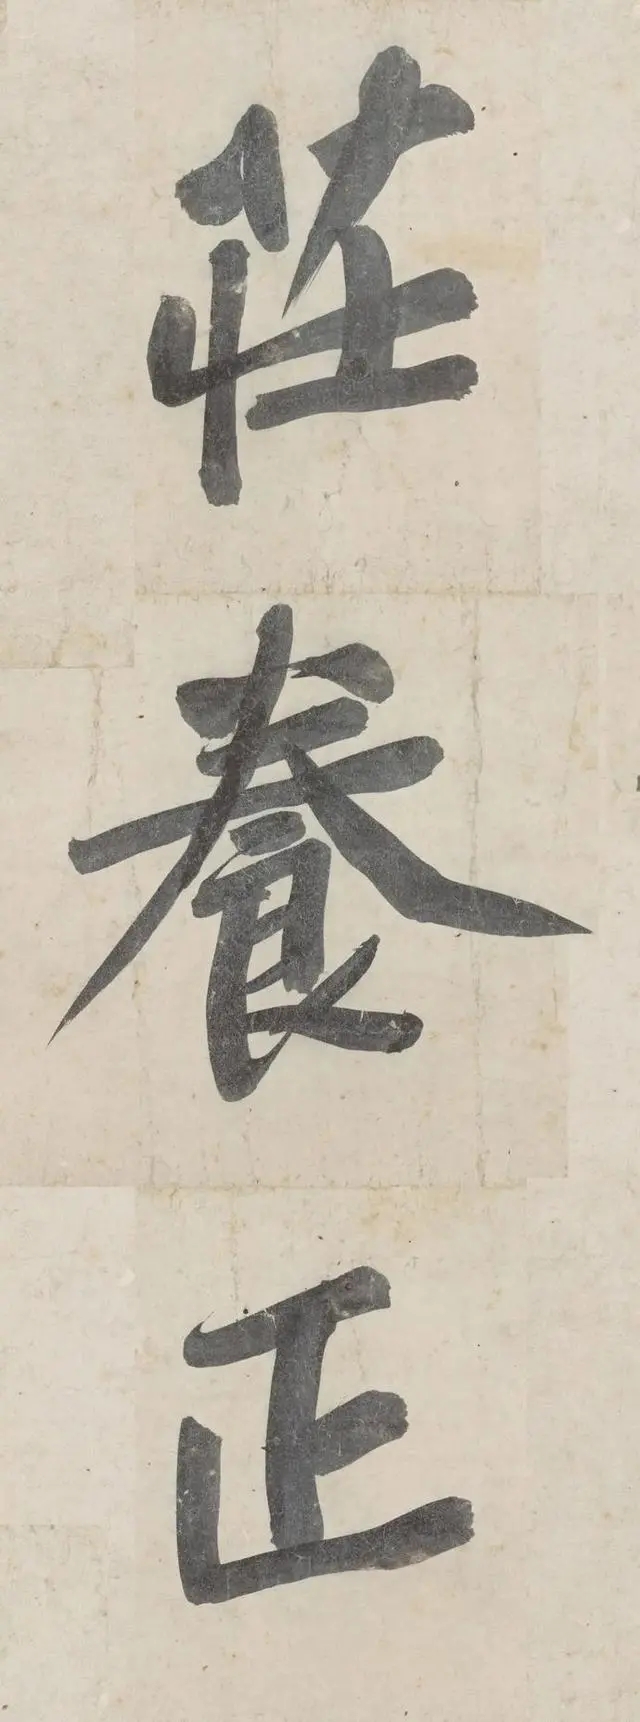 莊養正